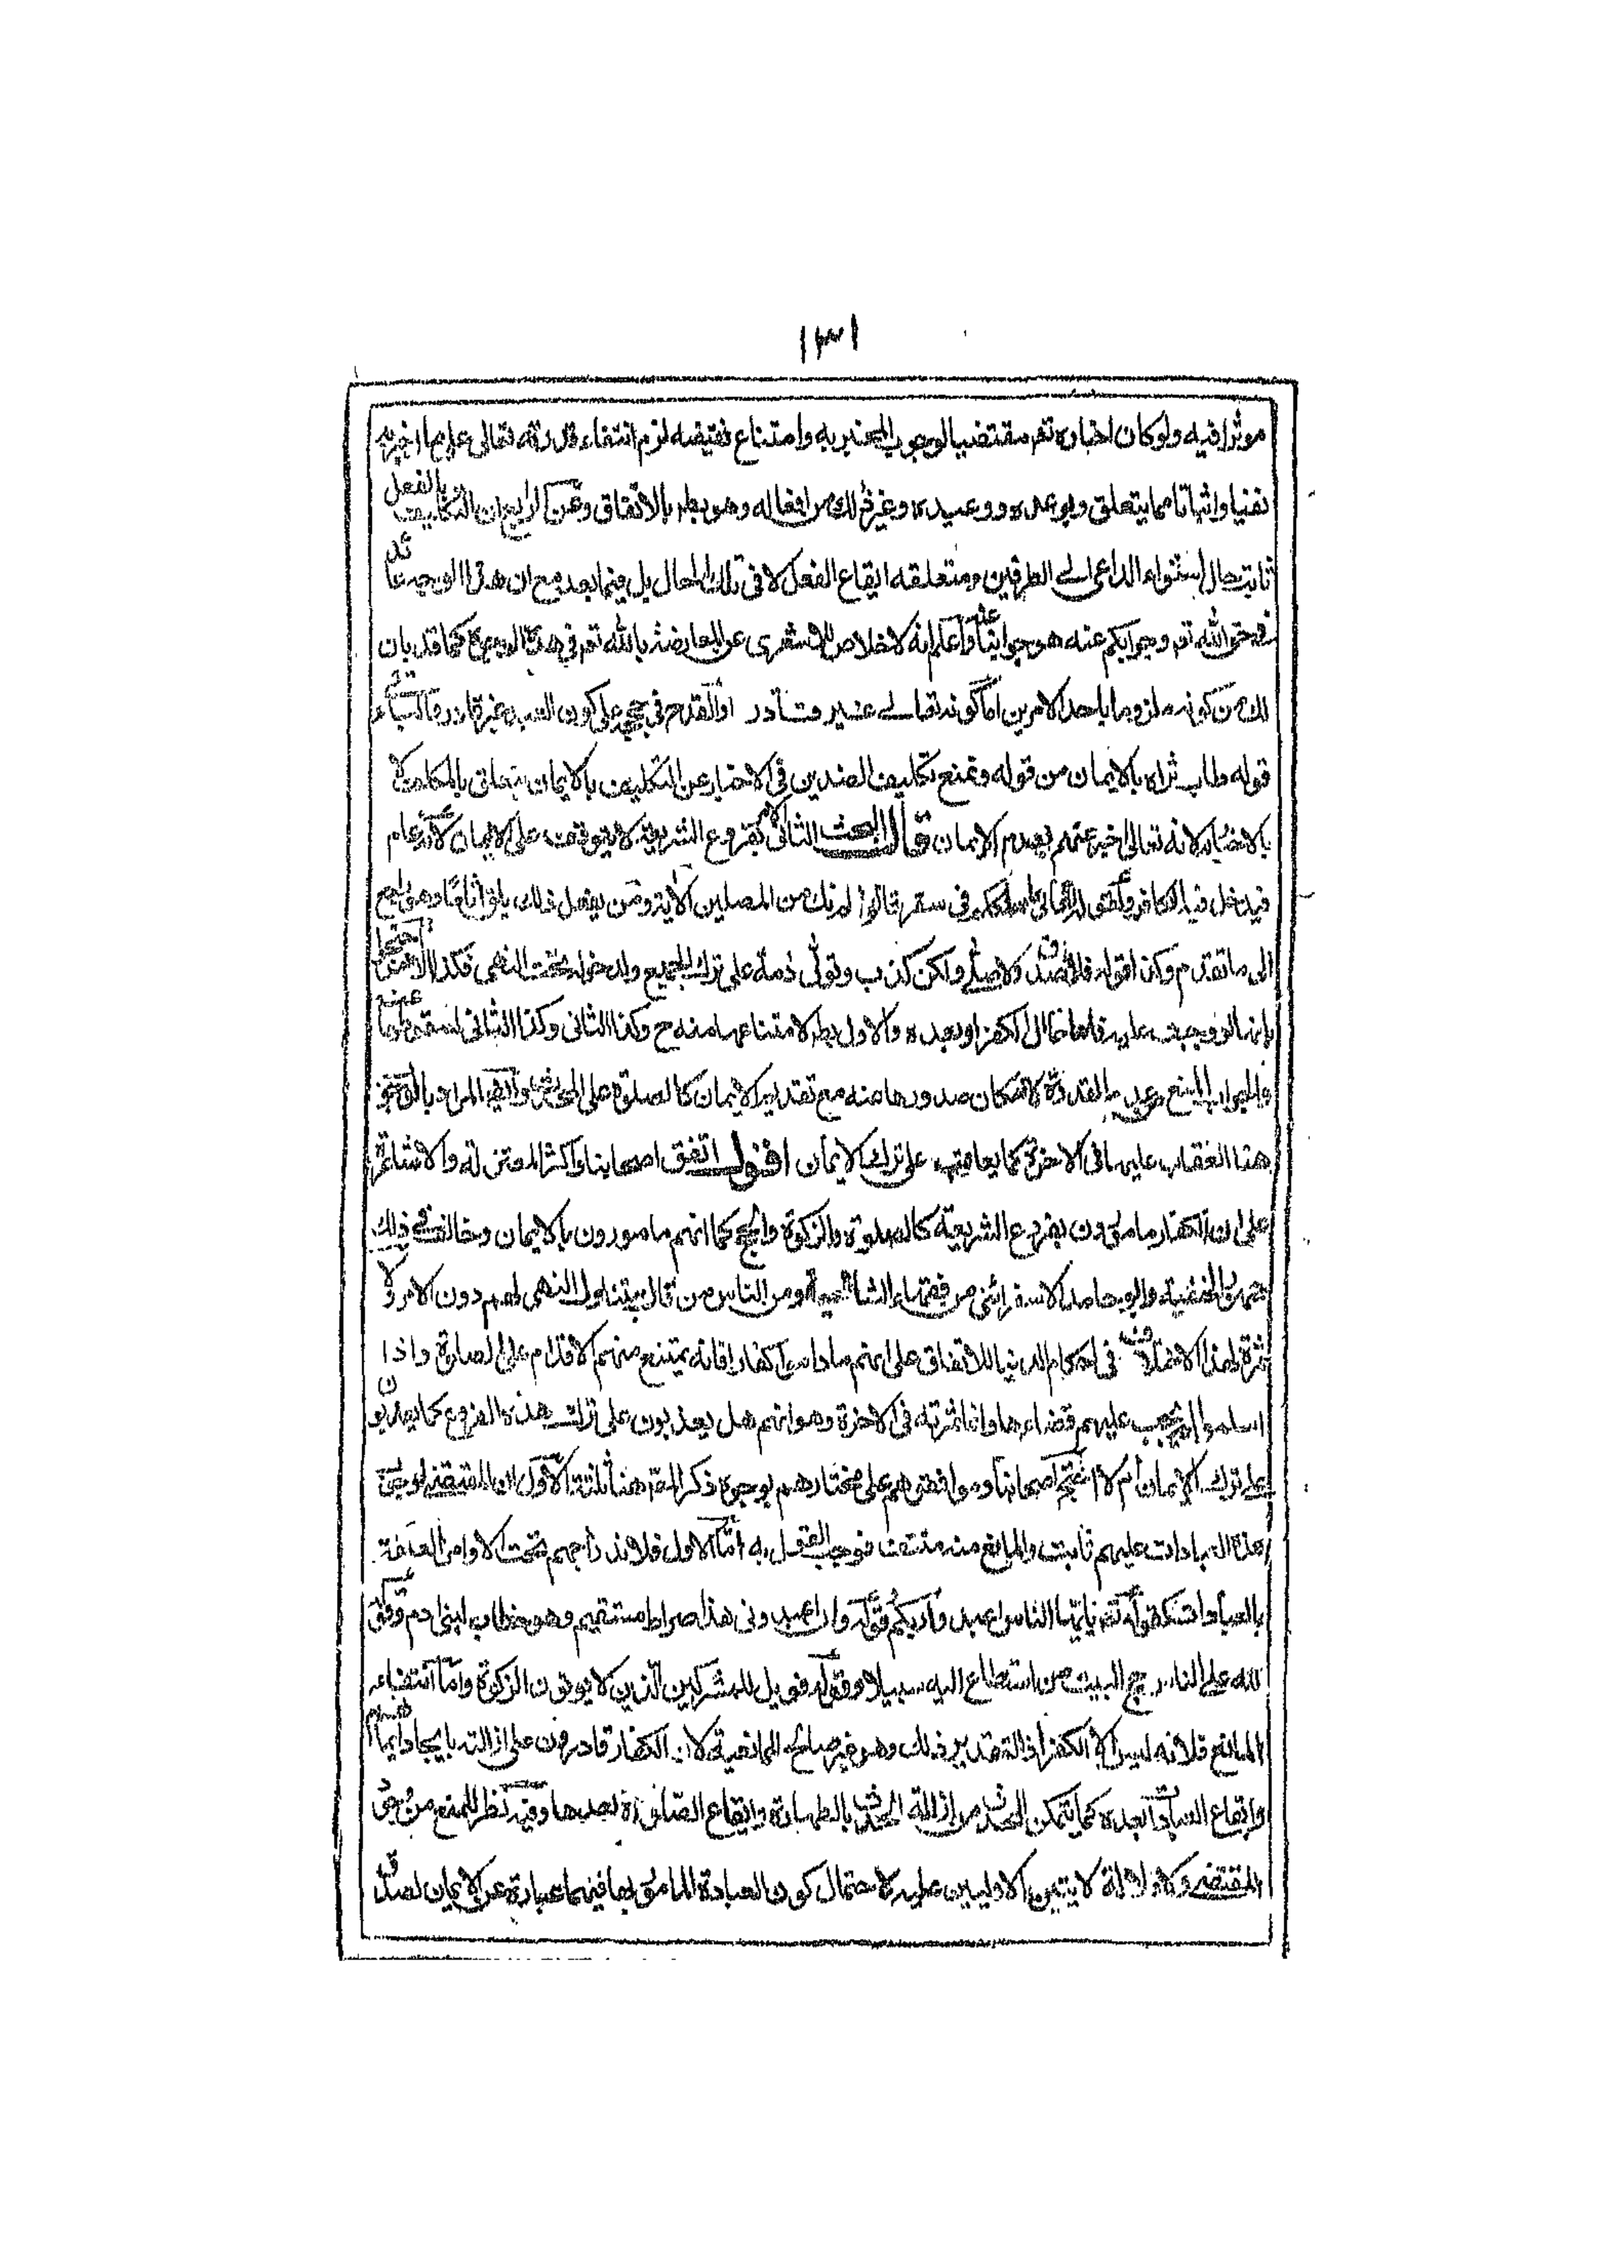 ١٣١
موثرا فيه ولو كان اخباره تعم مقتضيا لوجوب المخبر به وامتناع نقيضه لزم انتفاء قدرته تعالى على ما اخبر به
نفيا واثباتا مما يتعلق وبوعده ووعيده وغير ذلك من افعاله وهو بط بالاتفاق وعن الرابع ان التكليف بالفعل
ثابت حال استواء الداعى الى الطرفين ومتعلقه ايقاع الفعل لا فى تلك الحال بل فيما بعد مع ان هذا الوجه عائد
فى حق الله تعم وجوابكم عنه هو جوابنا واعلم انه لا خلاص للاشعرى عن المعارضة بالله تعم فى هذه الوجوه كما قد بان
لك من كونه ملزوما باحد الامرين اما كونه تعالى غير قادر او القدح فى حججه على كون العبد غير قادر
قوله طاب ثراه بالايمان من قوله ونمنع تكليف الضدين فى الاخبار عن التكليف بالايمان يتعلق بالتكليف لا
بالاخبار لانه تعالى اخبر عنهم بعدم الايمان قال البحث الثانى الامر بفروع الشريعة لا يتوقف على الايمان لانه عام
فيدخل فيه الكافر ولقوله تعالى ما سلككم فى سقر قالوا لم نك من المصلين الاية ومن يفعل ذلك يلق اثاما وهو راجع
الى ما تقدم وكذا قوله فلا صدق ولا صلى ولكن كذب وتولى ذمه على ترك الجميع ولدخوله تحت النهى فكذا الامر احتجوا
بانها لو وجبت عليه فاما حال الكفر او بعده والاول بط لامتناعها منه ح وكذا الثانى لسقوطها عنه
والجواب المنع من عدم القدرة لامكان صدورها منه مع تقديم الايمان كالصلوة على المحدث وايضا المراد بالوجوب
هنا العقاب عليها فى الاخرة كما يعاقب على ترك الايمان اقول اتفق اصحابنا واكثر المعتزلة والاشاعرة
على ان الكفار مامورون بفروع الشريعة كالصلوة والزكوة والحج كما انهم مامورون بالايمان وخالف فى ذلك
جمهور الحنفية وابو حامد الاسفرائنى من فقهاء الشافعية ومن الناس من قال يتناول النهى لهم دون الامر ولا
ثمرة لهذا الاختلاف فى احكام الدنيا للاتفاق على انهم ما داموا كفارا فانه يمتنع منهم الاقدام على الصلوة واذا
اسلموا لم يجب عليهم قضاءها وانما ثمرته فى الاخرة وهو انهم هل يعذبون على ترك هذه الفروع كما يعذبون
على ترك الايمان ام لا احتج اصحابنا وموافقوهم على مختارهم بوجوه ذكر المص هنا ثلثة الاول ان المقتضى لوجوب
هذه العبادات عليهم ثابت والمانع منه منتف فوجب القول به اما الاول فلاندراجهم تحت الاوامر العامة
بالعبادات كقوله تعم يا ايها الناس اعبدوا ربكم وقوله وان اعبدونى هذا صراط مستقيم وهو خطاب لبنى ادم وقوله
لله على الناس حج البيت من استطاع اليه سبيلا وقوله فويل للمشركين الذين لا يوتون الزكوة واما انتفاء
المانع فلانه ليس الا الكفر اذ التقدير ذلك وهو غير صالح للمانعية لان الكفار قادرون على ازالته بايجاد الايمان
وايقاع العبادة بعده كما يتمكن المحدث من ازالة الحدث بالطهارة وايقاع الصلوة بعدها وفيه نظر للمنع من وجود
المقتضى ولا دلالة لايتين الاوليين عليه لاحتمال كون العبادة المامور بها فيهما عبارة عن الايمان لصدق